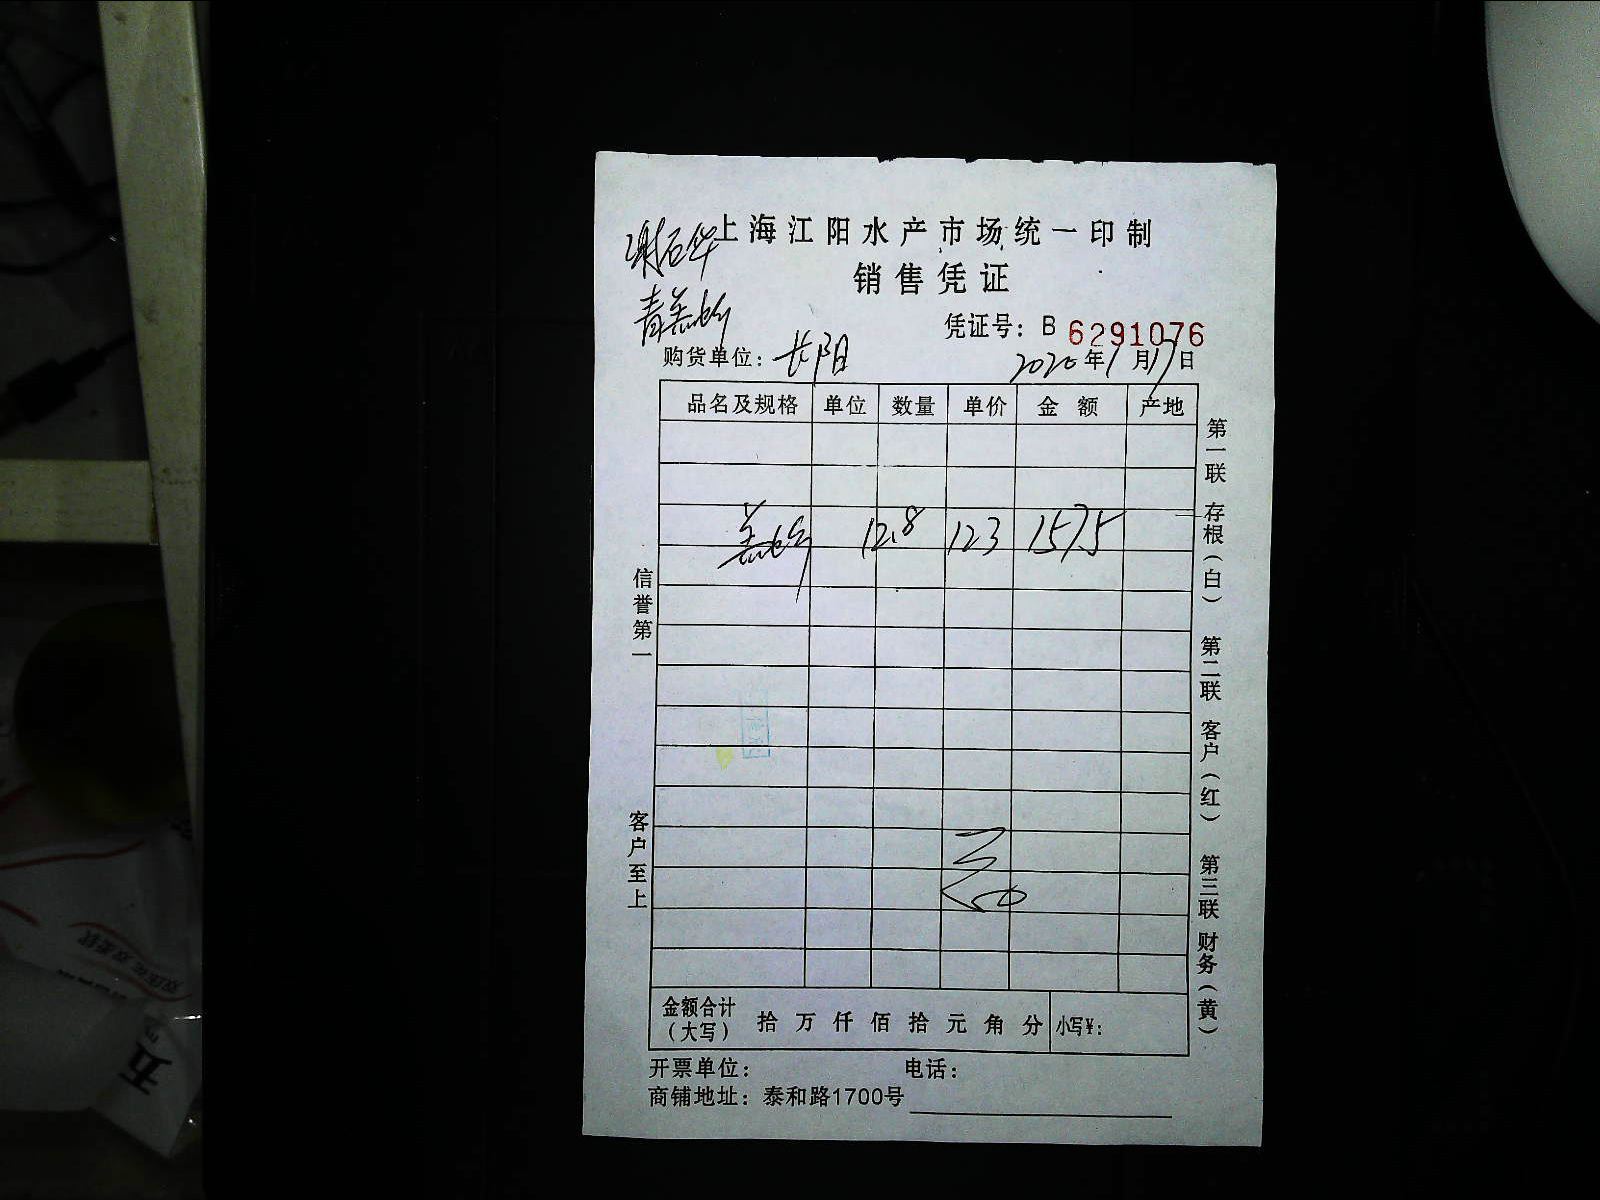 上海江阳水产市场统一印制
谢石华
销售凭证
凭证号：B 6291076
购货单位：长阳
2020年1月17日
品名及规格 单位 数量 单价 金额 产地
12.8 123 1575
信誉第一
客户至上
第一联 存根（白） 第二联 客户（红） 第三联 财务（黄）
金额合计（大写） 拾 万 仟 佰 拾 元 角 分 小写¥：
开票单位： 电话：
商铺地址：泰和路1700号
五